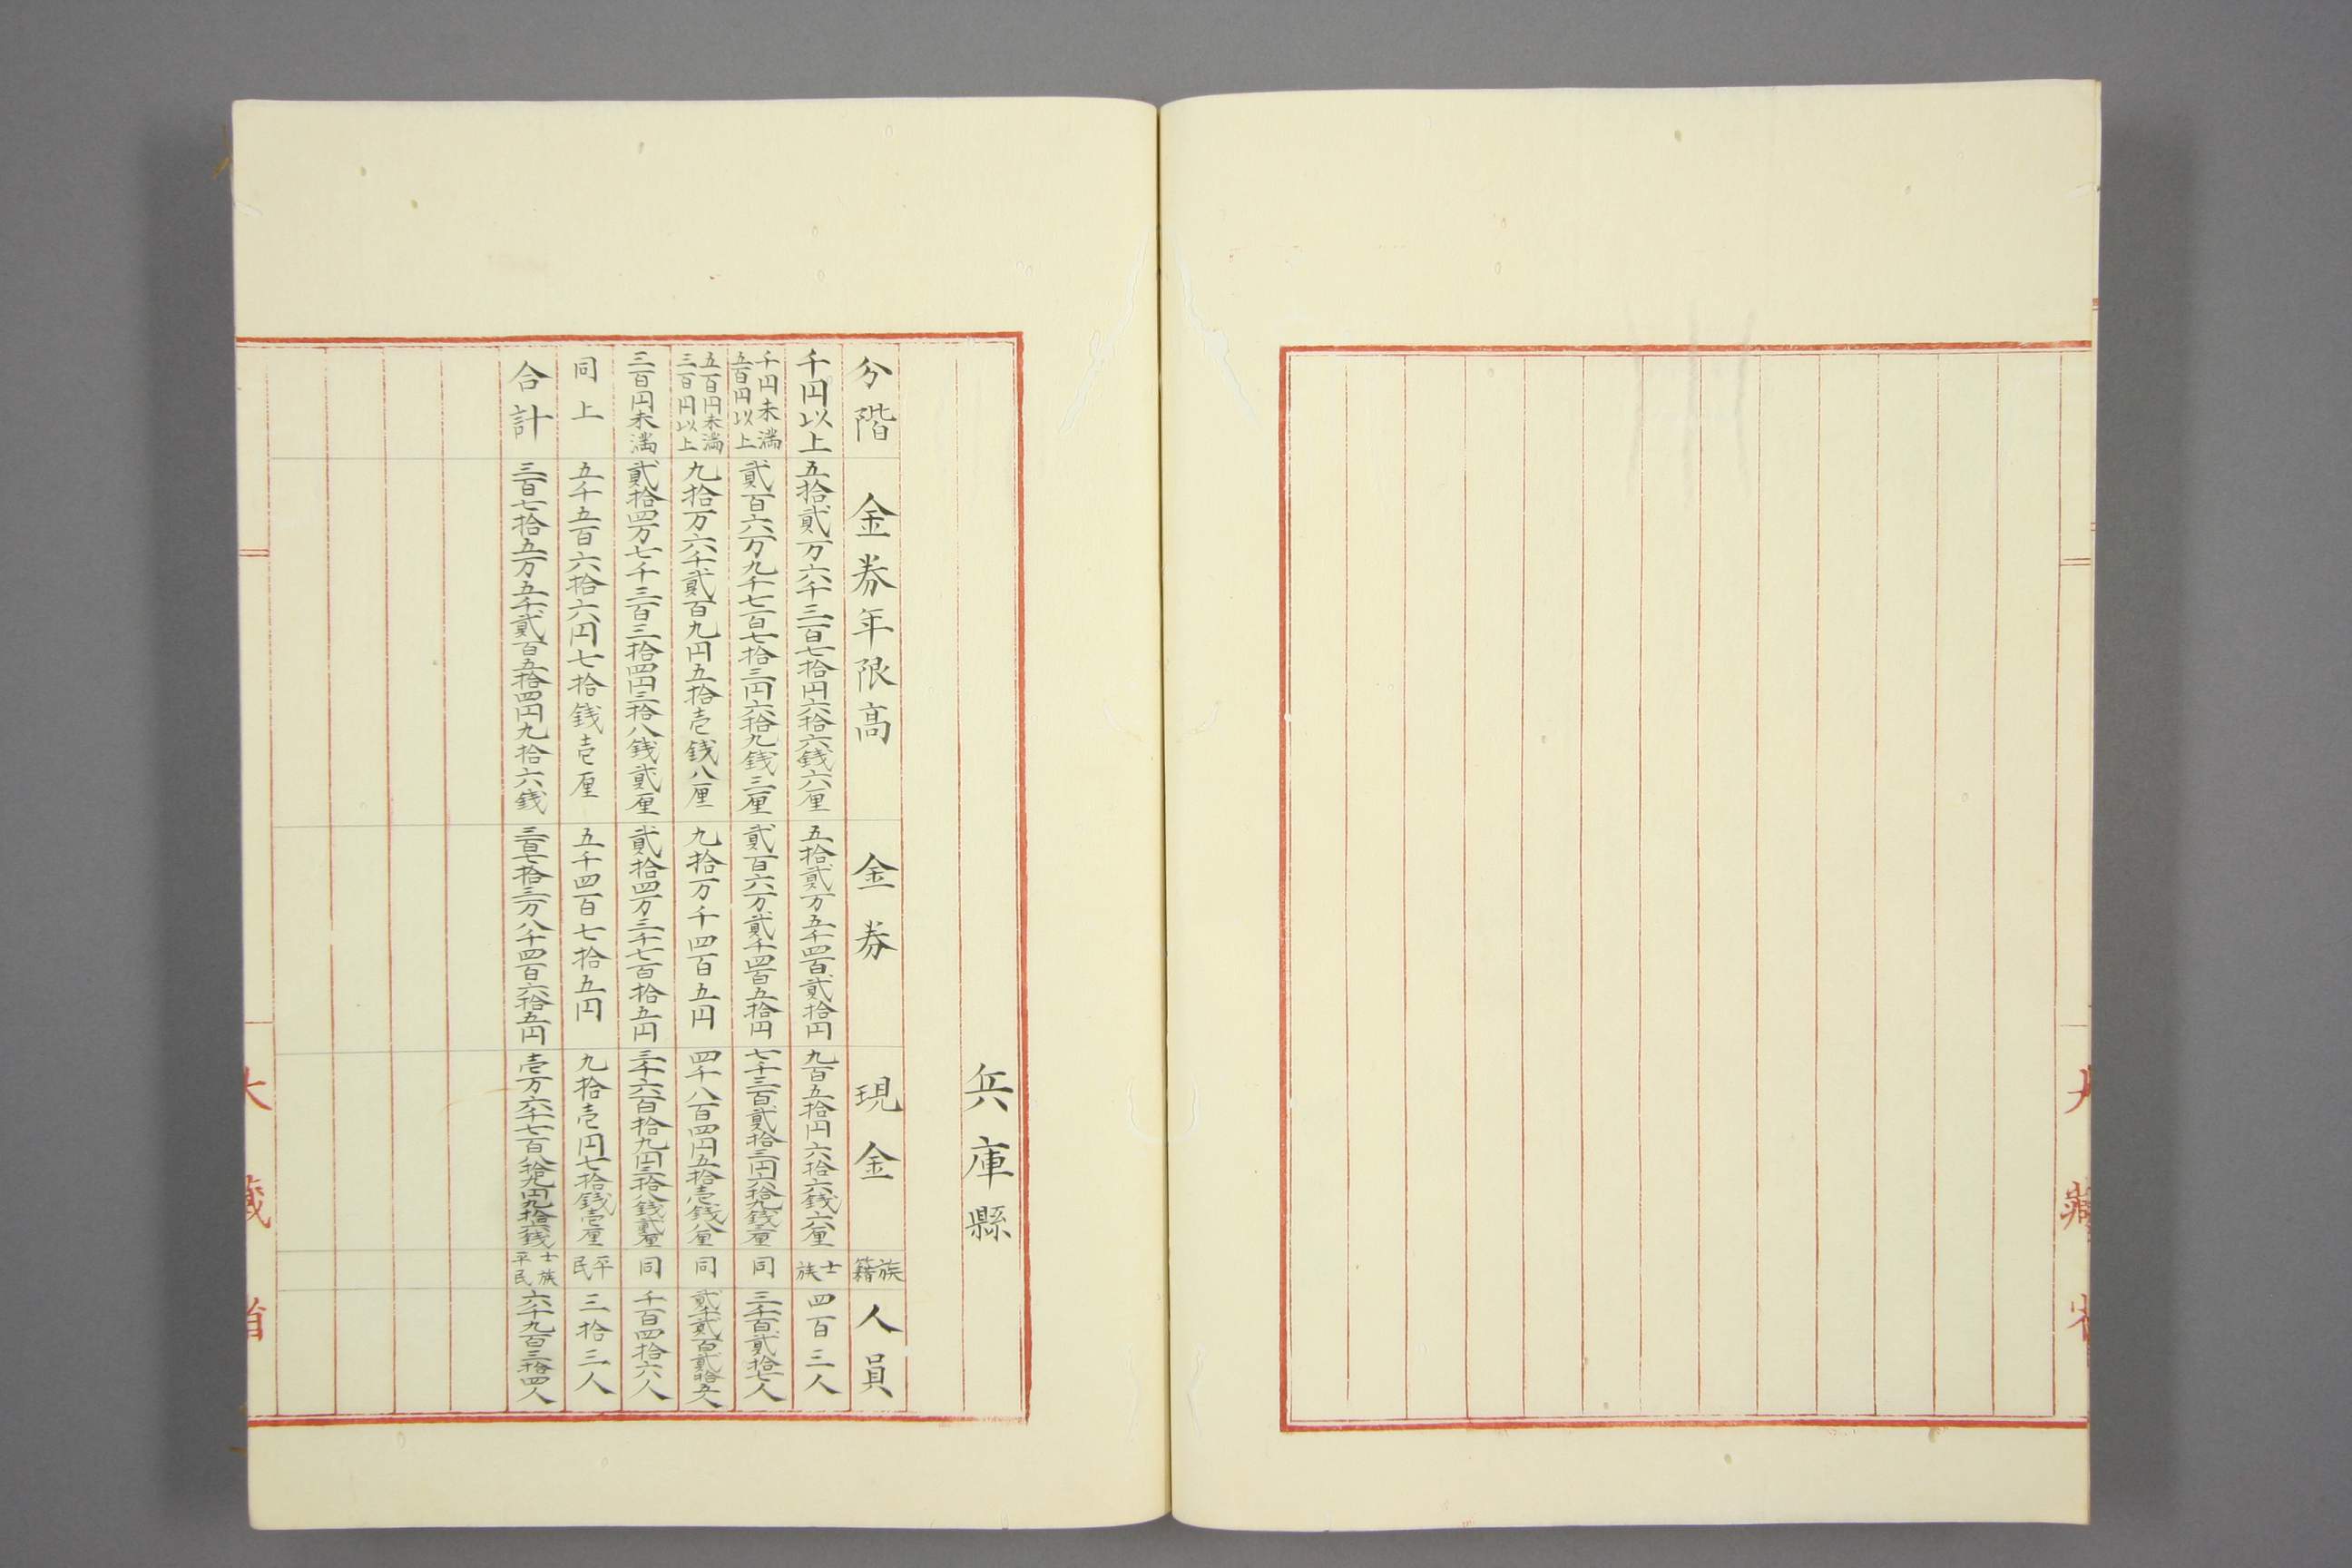 大藏省
兵庫縣
分階 金券年限高 金券 現金 族籍 人員
千円以上 五拾貳万六千三百七拾円六拾六銭六厘 五拾貳万五千四百貳拾円 九百五拾円六拾六銭六厘 士族 四百三人
千円未満五百円以上 貳百六万九千七百七拾三円六拾九銭三厘 貳百六万貳千四百五拾円 七千三百貳拾三円六拾九銭三厘 同 三千百貳拾七人
五百円未満三百円以上 九拾万六千貳百九円五拾壱銭八厘 九拾万千四百五円 四千八百四円五拾壱銭八厘 同 貳千貳百貳拾五人
三百円未満 貳拾四万七千三百三拾四円三拾八銭貳厘 貳拾四万三千七百拾五円 三千六百拾九円三拾八銭貳厘 同 千百四拾六人
同上 五千五百六拾六円七拾銭壱厘 五千四百七拾五円 九拾壱円七拾銭壱厘 平民 三拾三人
合計 三百七拾五万五千貳百五拾四円九拾六銭 三百七拾三万八千四百六拾五円 壱万六千七百八拾九円九拾六銭 士族平民 六千九百三拾四人
大藏省